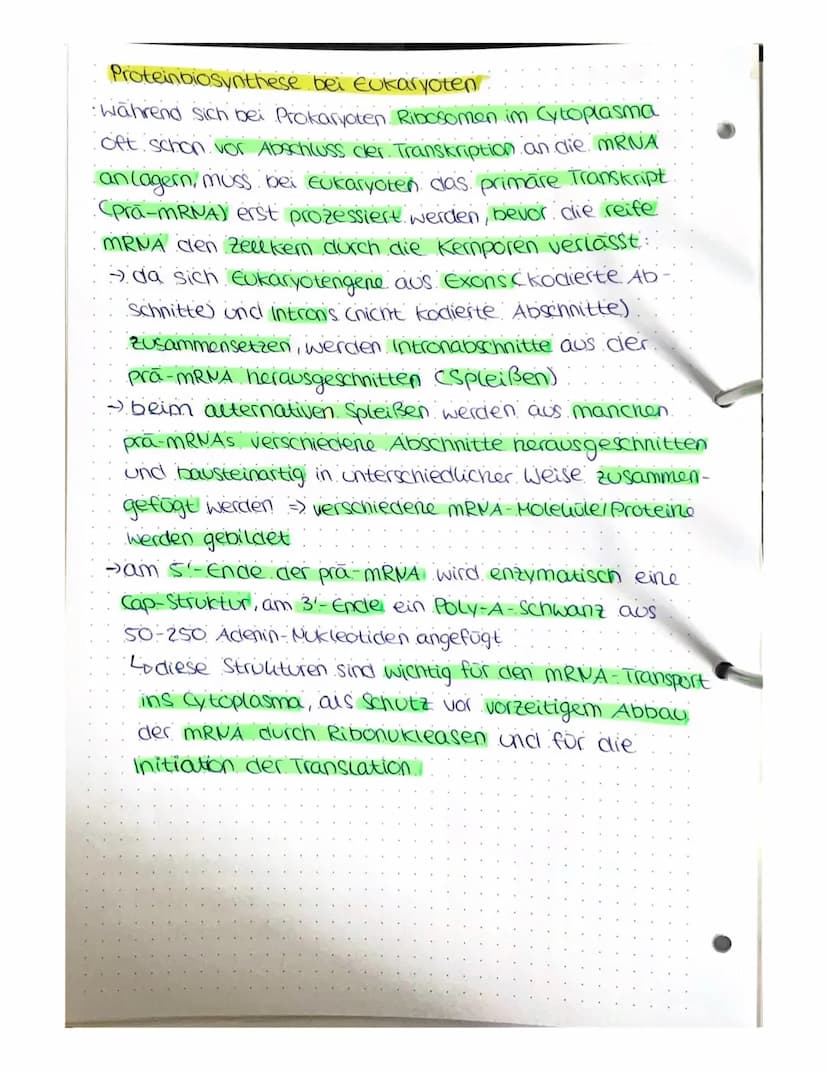 Proteinbiosynthese bei Eukaryoten
·während sich bei Prokaryoten Ribosomen im Cytoplasma
oft schon vor Abschluss der Transkription an die mRNA
anlagern, muss bei Eukaryoten das primäre Transkript
(prä-mRNA) erst prozessiert werden, bevor die reife
mRNA den Zellkern durch die Kernporen verlässt:
→ da sich Eukaryotengene aus Exons (kodierte Ab-
schnitte) und Introns (nicht kodierte Abschnitte)
zusammensetzen, werden Intronabschnitte aus der
prä-mRNA herausgeschnitten (Spleißen)
→ beim alternativen Spleißen werden aus manchen
prä-mRNAs verschiedene Abschnitte herausgeschnitten
und bausteinartig in unterschiedlicher Weise zusammen-
gefügt werden => verschiedene mRNA-Moleküle/Proteine
werden gebildet
→ am 5'-Ende der prä-mRNA wird enzymatisch eine
Cap-Struktur, am 3'-Ende ein Poly-A-Schwanz aus
50-250 Adenin-Nukleotiden angefügt
↳ diese Strukturen sind wichtig für den mRNA-Transport
ins Cytoplasma, als Schutz vor vorzeitigem Abbau
der mRNA durch Ribonukleasen und für die
Initiation der Translation